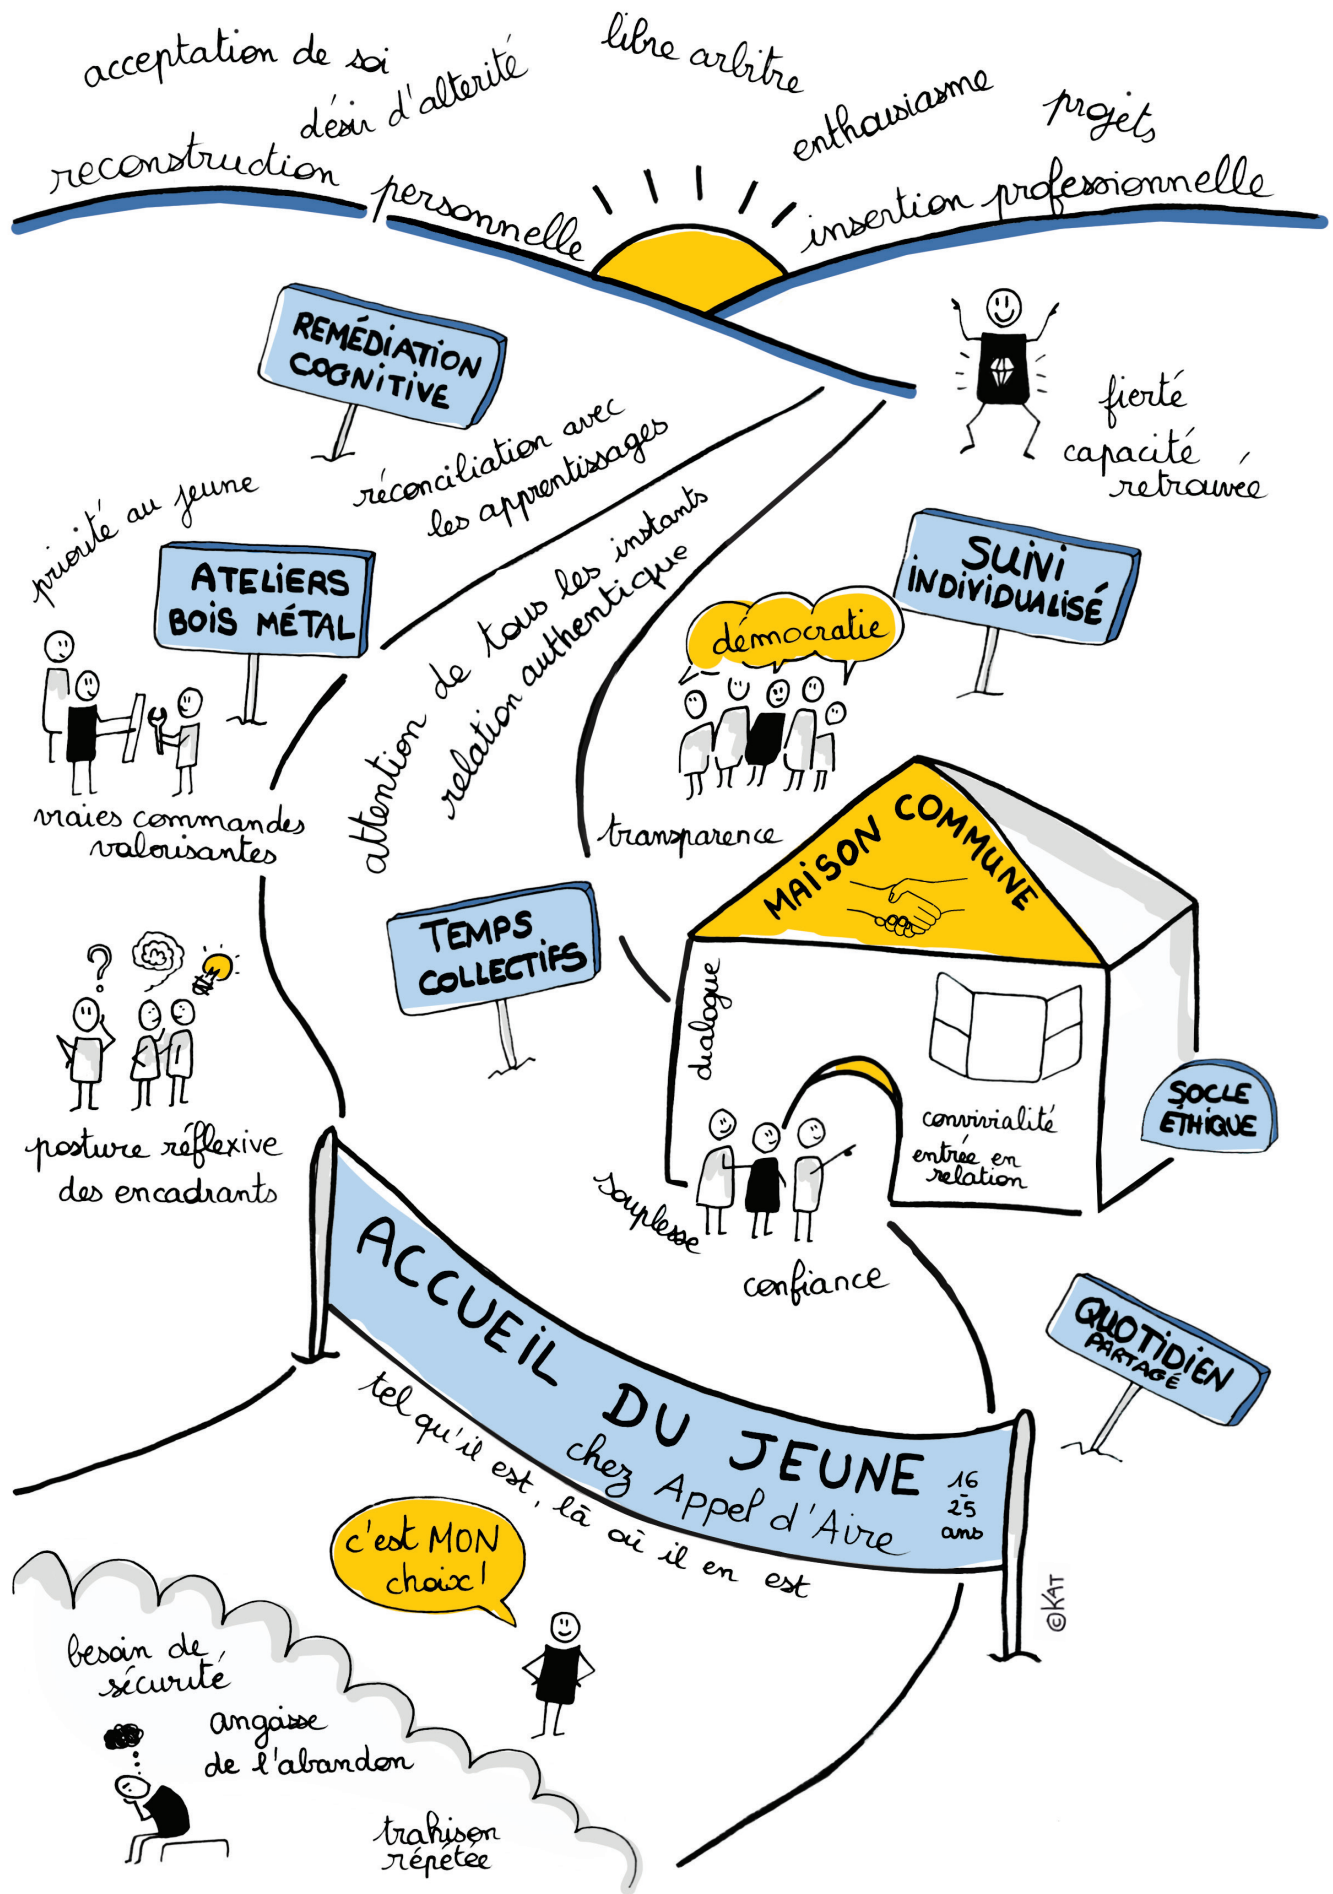 acceptation de soi
désir d'alterité
libre arbitre
enthousiasme
projets
reconstruction personnelle
insertion professionnelle
REMÉDIATION
COGNITIVE
réconciliation avec
les apprentissages
fierté
capacité
retrouvée
priorité au jeune
ATELIERS
BOIS MÉTAL
vraies commandes
valorisantes
attention de tous les instants
relation authentique
SUIVI
INDIVIDUALISÉ
démocratie
transparence
MAISON COMMUNE
TEMPS
COLLECTIFS
dialogue
convivialité
entrée en
relation
SOCLE
ÉTHIQUE
posture réflexive
des encadrants
souplesse
confiance
QUOTIDIEN
PARTAGÉ
ACCUEIL DU JEUNE
chez Appel d'Aire
16
-
25
ans
tel qu'il est, là où il en est
©KAT
c'est MON
choix!
besoin de
sécurité
angoisse
de l'abandon
trahison
répétée